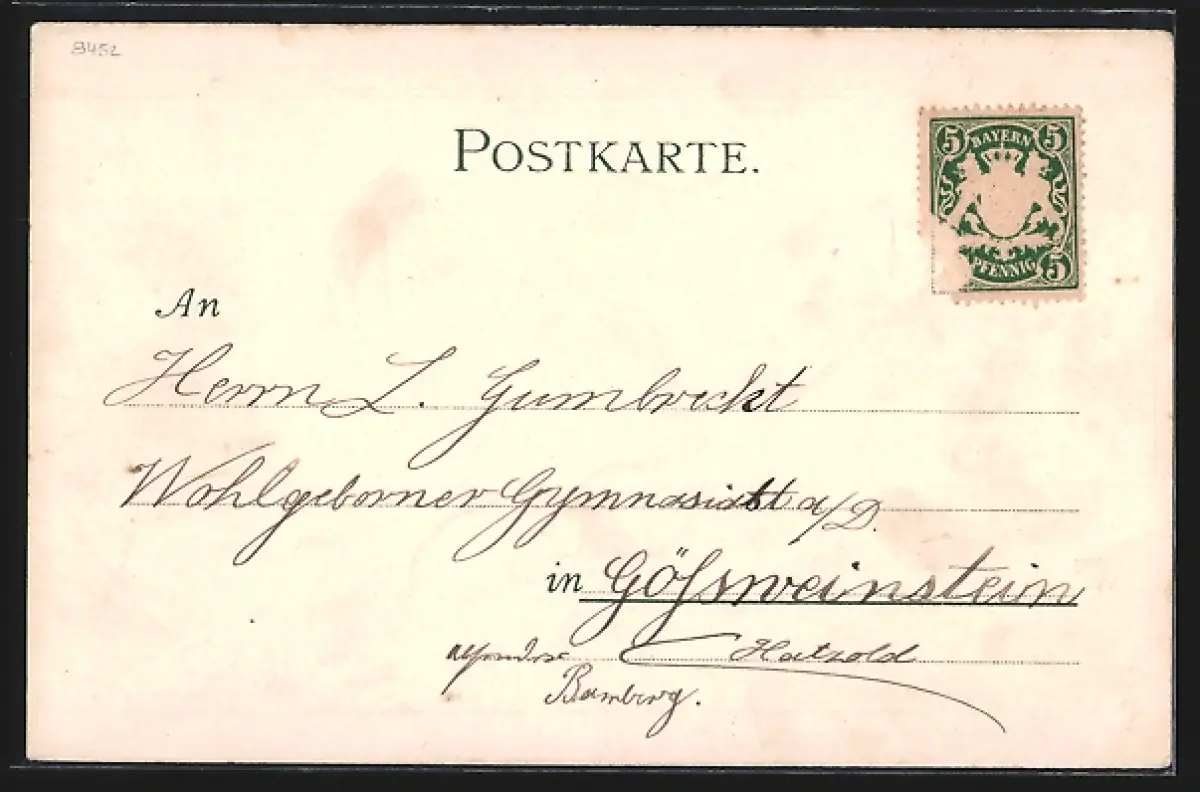 8452
POSTKARTE.
5 BAYERN 5
PFENNIG 5
An
Herrn L. Gumbrecht
Wohlgeborner Gymnasiast a/D.
in Gößweinstein
Hatzold
Bamberg.